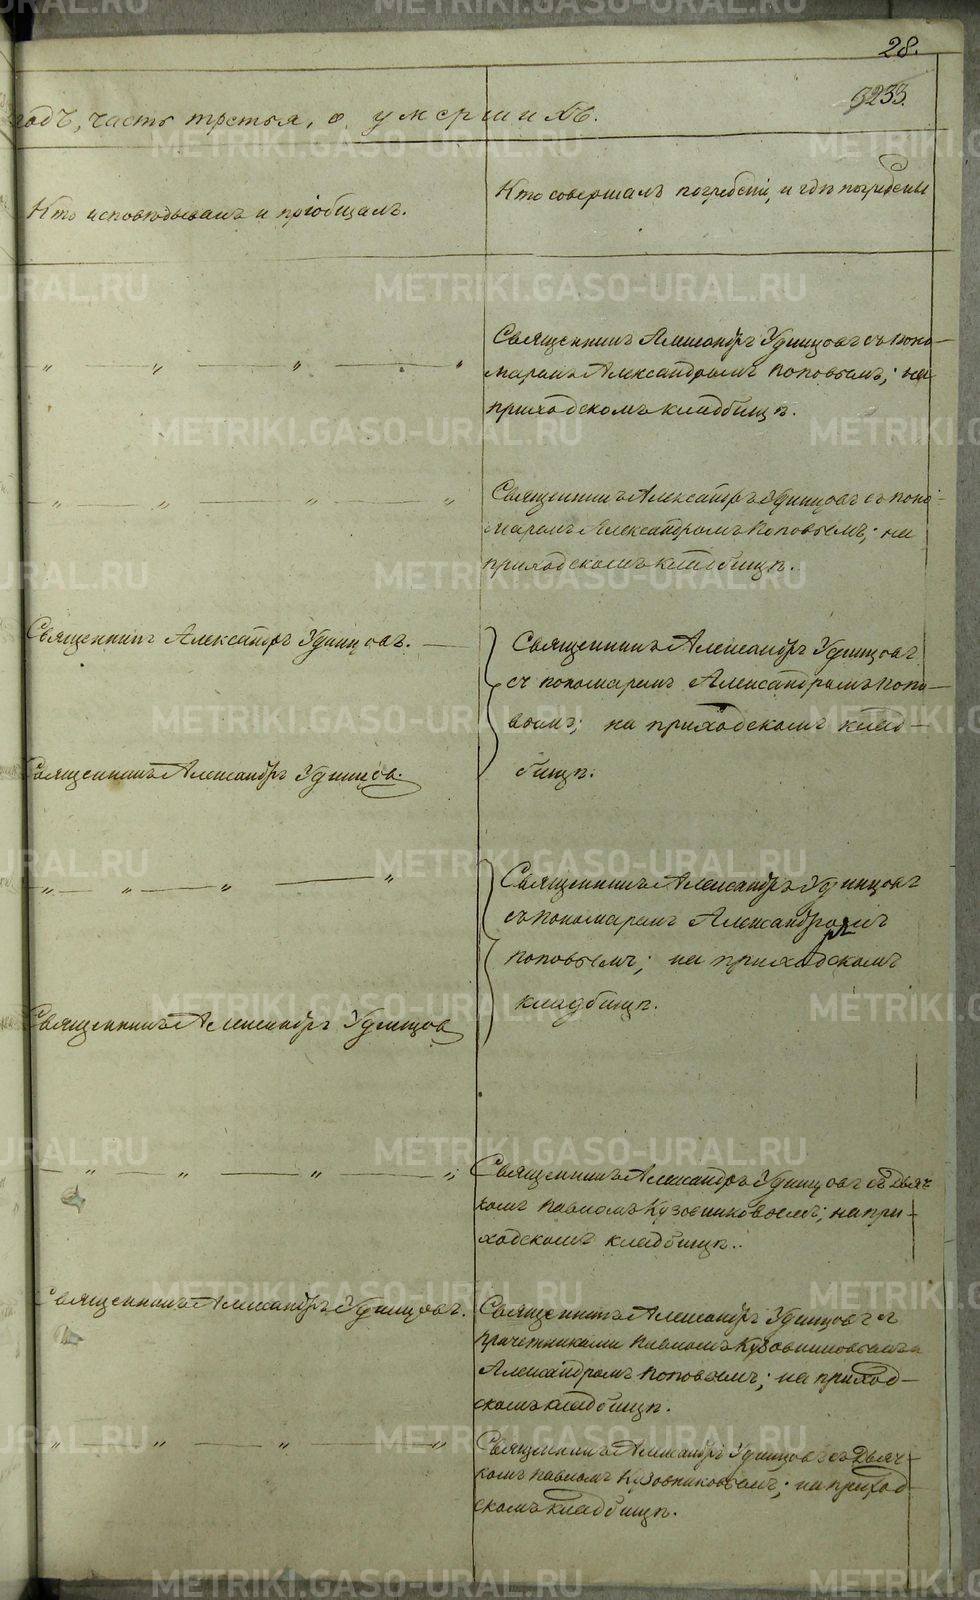 28.
3233.
годъ, часть третья, о умершихъ.
Кто исповѣдывалъ и пріобщалъ.
Кто совершалъ погребеніе, и гдѣ погребены
Священникъ Александръ Удинцовъ съ поно-
маремъ Александромъ Поповымъ; на
приходскомъ кладбищѣ.
Священникъ Александръ Удинцовъ съ поно-
маремъ Александромъ Поповымъ; на
приходскомъ кладбищѣ.
Священникъ Александръ Удинцовъ.
Священникъ Александръ Удинцовъ
съ пономаремъ Александромъ Попо-
вымъ; на приходскомъ клад-
бищѣ.
Священникъ Александръ Удинцов.
Священникъ Александръ Удинцовъ
съ пономаремъ Александромъ
Поповымъ; на приходскомъ
кладбищѣ.
Священникъ Александръ Удинцов
Священникъ Александръ Удинцовъ съ Дьяч-
комъ Павломъ Кузовниковымъ; на при-
ходскомъ кладбищѣ.
Священникъ Александръ Удинцовъ.
Священникъ Александръ Удинцовъ съ
причетниками Павломъ Кузовниковымъ и
Александромъ Поповымъ; на приход-
скомъ кладбищѣ.
Священникъ Александръ Удинцовъ съ Дьяч-
комъ Павломъ Кузовниковымъ; на приход-
скомъ кладбищѣ.
METRIKI.GASO-URAL.RU